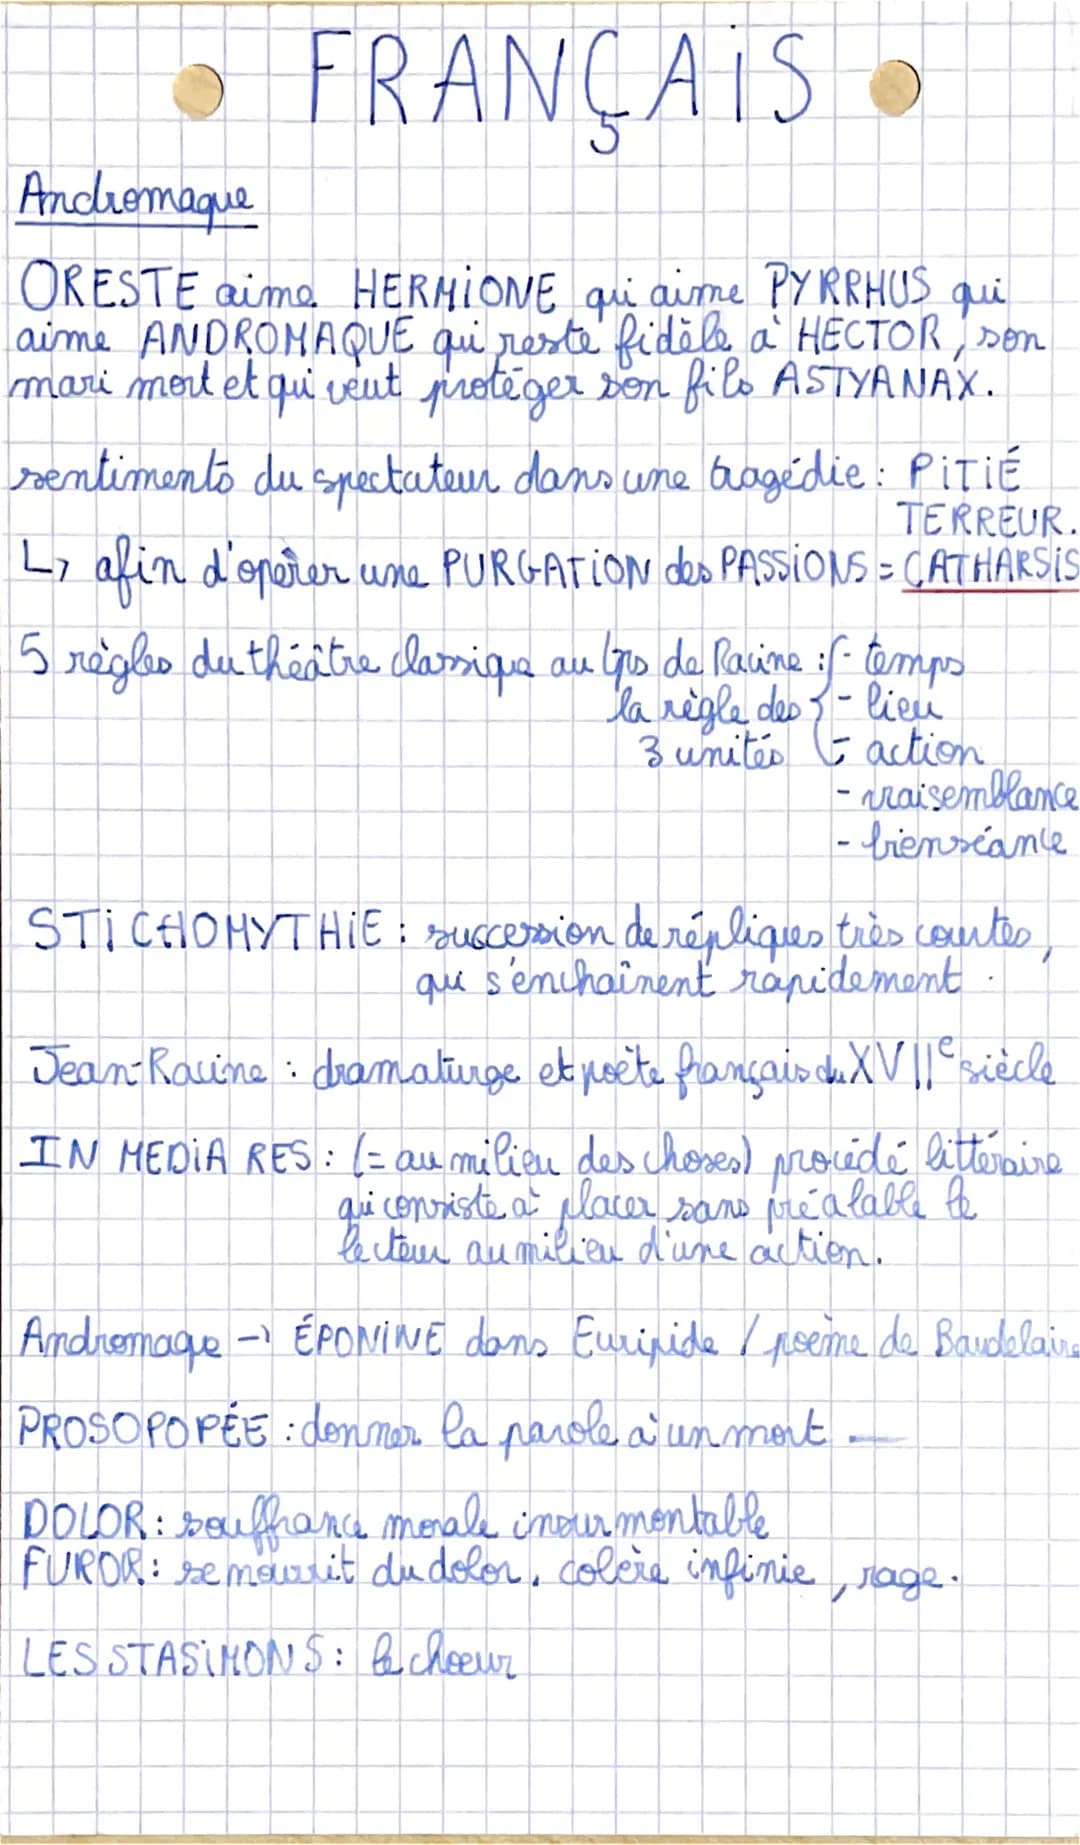 FRANÇAiS
Andromaque
ORESTE aime HERMiONE qui aime PYRRHUS qui
aime ANDROMAQUE qui reste fidèle à HECTOR, son
mari mort et qui veut protéger son fils ASTYANAX.
sentiments du spectateur dans une tragédie : PiTiÉ
TERREUR.
↳ afin d'opérer une PURGATiON des PASSiONS = CATHARSiS
5 règles du théâtre classique au tps de Racine : - temps
la règle des - lieu
3 unités - action
- vraisemblance
- bienséance
STiCHOMYTHiE : succession de répliques très courtes,
qui s'enchaînent rapidement.
Jean-Racine : dramaturge et poète français du XVIIe siècle
IN MEDiA RES : (= au milieu des choses) procédé littéraire
qui consiste à placer sans préalable le
lecteur au milieu d'une action.
Andromaque → ÉPONiNE dans Euripide / poème de Baudelaire
PROSOPOPÉE : donner la parole à un mort
DOLOR : souffrance morale insurmontable
FUROR : se nourrit du dolor, colère infinie, rage.
LES STASiMONS : le choeur